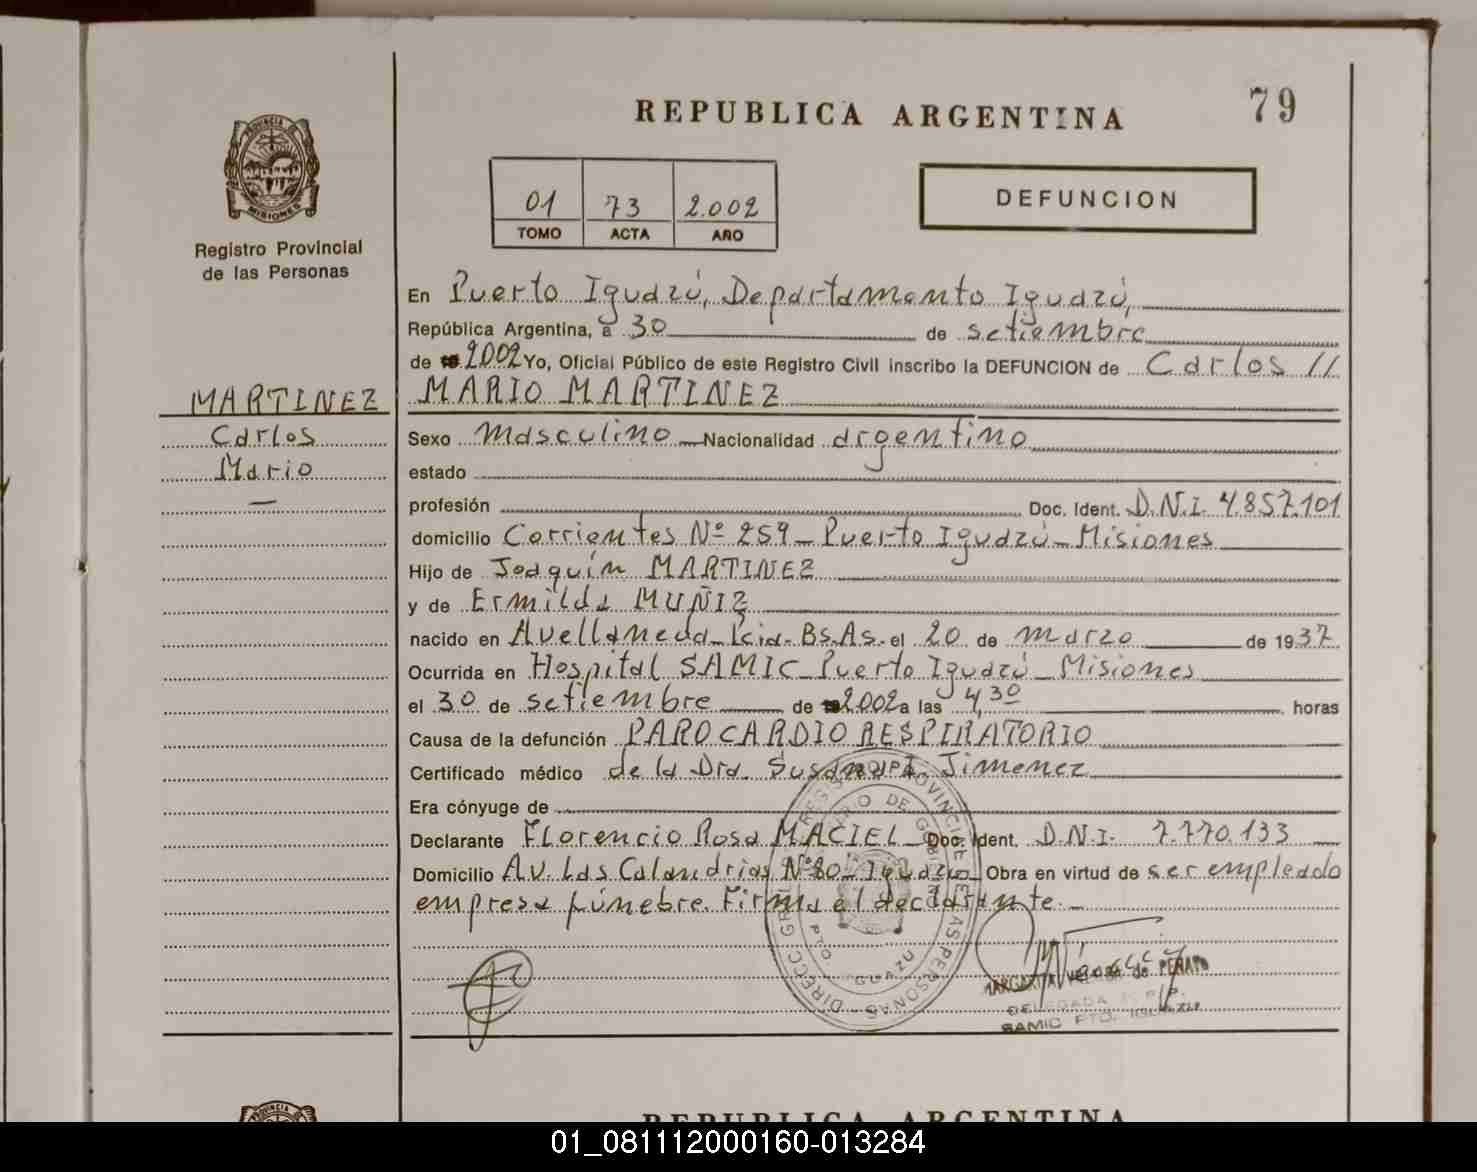 REPUBLICA ARGENTINA
79
PROVINCIA DE
MISIONES
Registro Provincial
de las Personas
01 73 2.002
TOMO ACTA AÑO
DEFUNCION
En Puerto Iguazú, Departamento Iguazú,
República Argentina, a 30 de setiembre
de 2002 Yo, Oficial Público de este Registro Civil inscribo la DEFUNCION de Carlos //
MARIO MARTINEZ
MARTINEZ
Carlos
Mario
—
Sexo masculino Nacionalidad argentino
estado
profesión Doc. Ident. D.N.I. 4.857.101
domicilio Corrientes Nº 259 - Puerto Iguazú - Misiones
Hijo de Joaquín MARTINEZ
y de Ermilda MUÑIZ
nacido en Avellaneda - Pcia. Bs.As. el 20 de marzo de 1937
Ocurrida en Hospital SAMIC - Puerto Iguazú - Misiones
el 30 de setiembre de 2002 a las 4,30 horas
Causa de la defunción PARO CARDIO RESPIRATORIO
Certificado médico de la Dra. Susana Jimenez
Era cónyuge de
Declarante Florencio Rosa MACIEL - Doc. Ident. D.N.I. 7.770.133
Domicilio Av. Las Calandrias Nº 80 - Iguazú - Obra en virtud de ser empleado
empresa fúnebre. Firma el declarante.-
PTO. IGUAZU
MARGARITA de PERATO
DELEGADA
SAMIC PTO. IGUAZU
PROVINCIA DE
REPUBLICA ARGENTINA
01_081112000160-013284